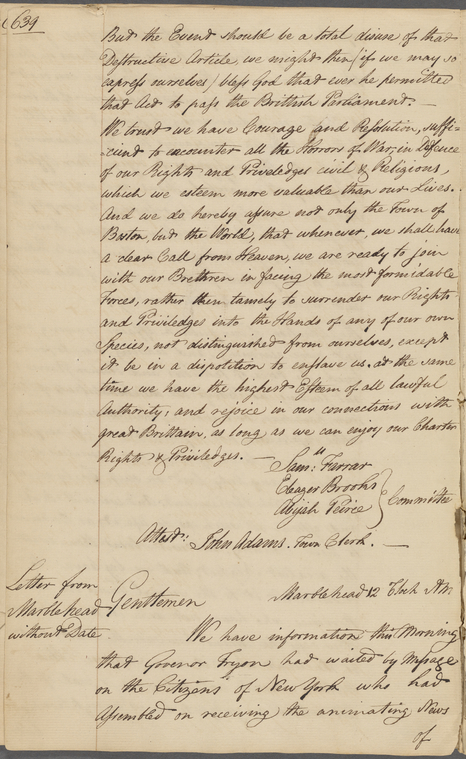 639
But the Event should be a total disuse of that
Destructive Article, we might then (if we may so
express ourselves) bless God that ever he permitted
that Act to pass the Brittish Parliament. —
We trust we have Courage and Resolution, suffi-
-cient to encounter all the Horrors of War in Defence
of our Rights and Priveledges civil & Religious,
which we esteem more valuable than our Lives.
And we do hereby assure not only the Town of
Boston, but the World, that whenever we shall have
a clear Call from Heaven, we are ready to join
with our Brethren in facing the most formidable
Forces, rather then tamely to surrender our Rights
and Priviledges into the Hands of any of our own
Species, not distinguished from ourselves, except
it be in a disposition to enslave us. at the same
time we have the highest Esteem of all lawful
Authority; and rejoice in our connections with
great Brittain, as long as we can enjoy our Charter
Rights & Priviledges. —
Saml: Farrar
Eleazer Brooks
Abijah Peirce
Committee
Attest: John Adams. Town Clerk. —
Letter from
Marblehead
without Date
Marblehead 12 Clock AM
Gentlemen
We have information this Morning
that Govenor Tryon had waited by Message
on the Citizens of New York who had
Assembled on receiving the animating News
of